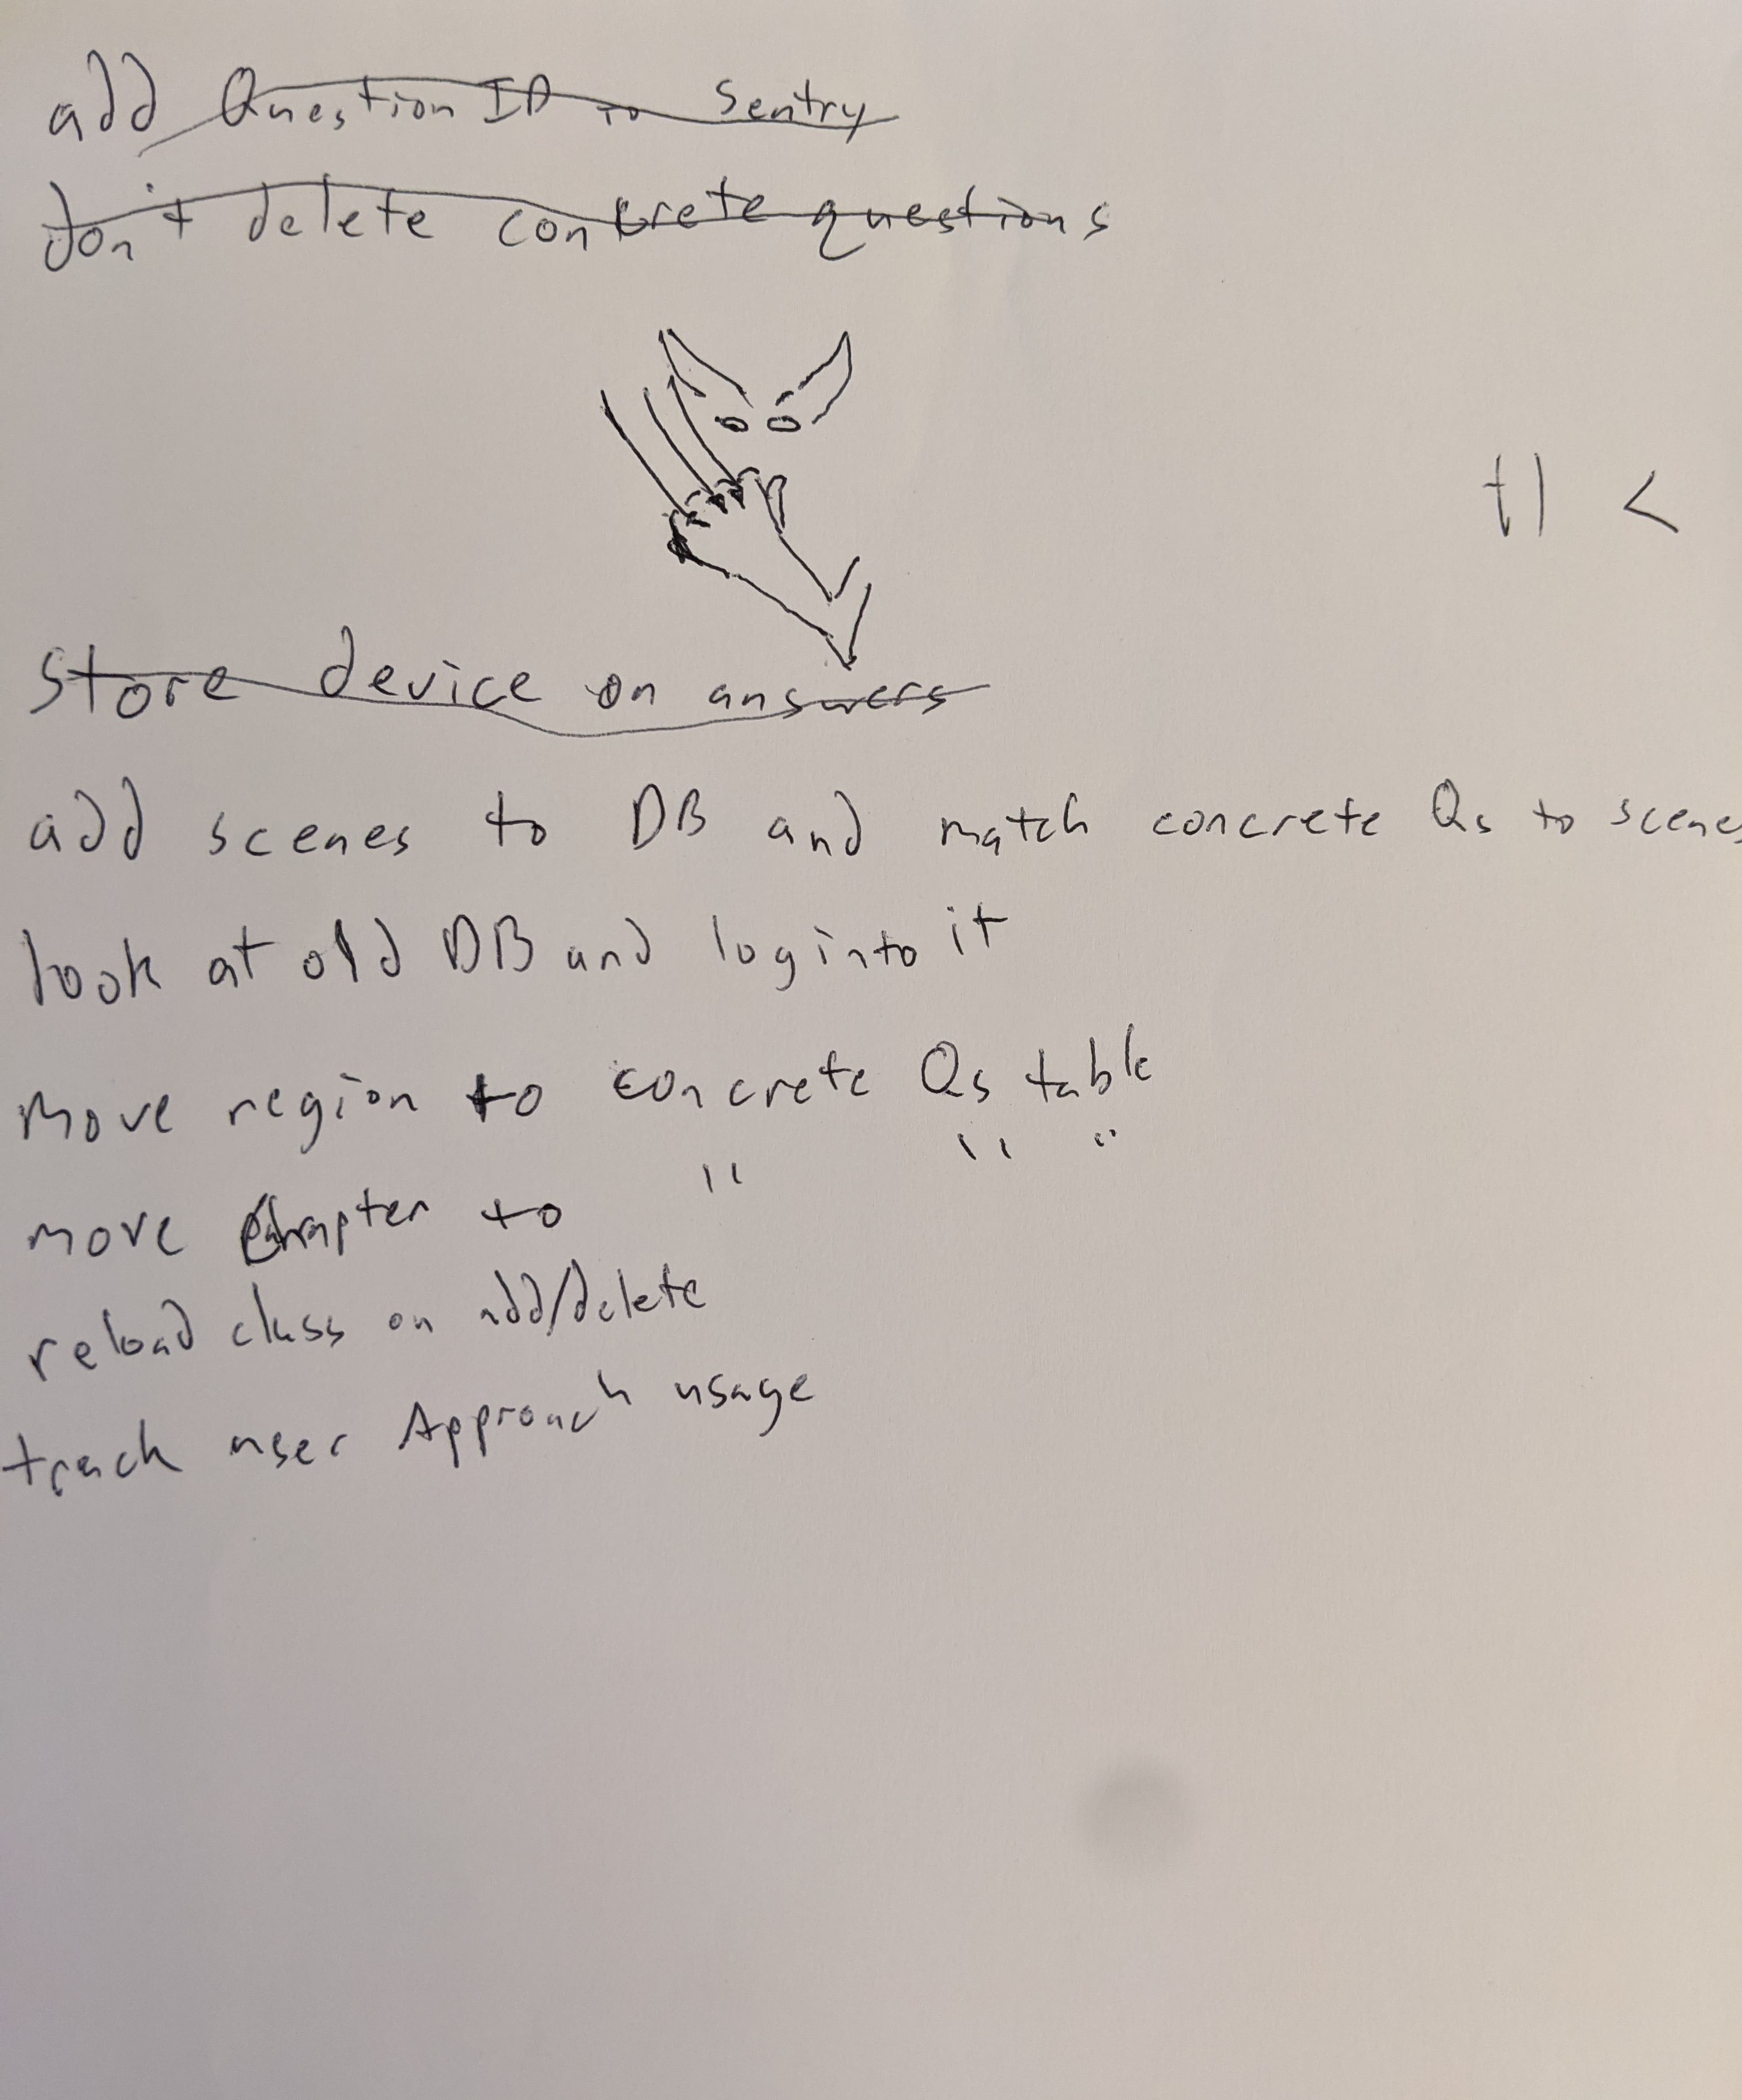 add Question ID to Sentry
don't delete concrete questions
store device on answers
add scenes to DB and match concrete Qs to scenes
look at old DB and log into it
move region to concrete Qs table
move chapter to " " "
reload class on add/delete
track user Approach usage